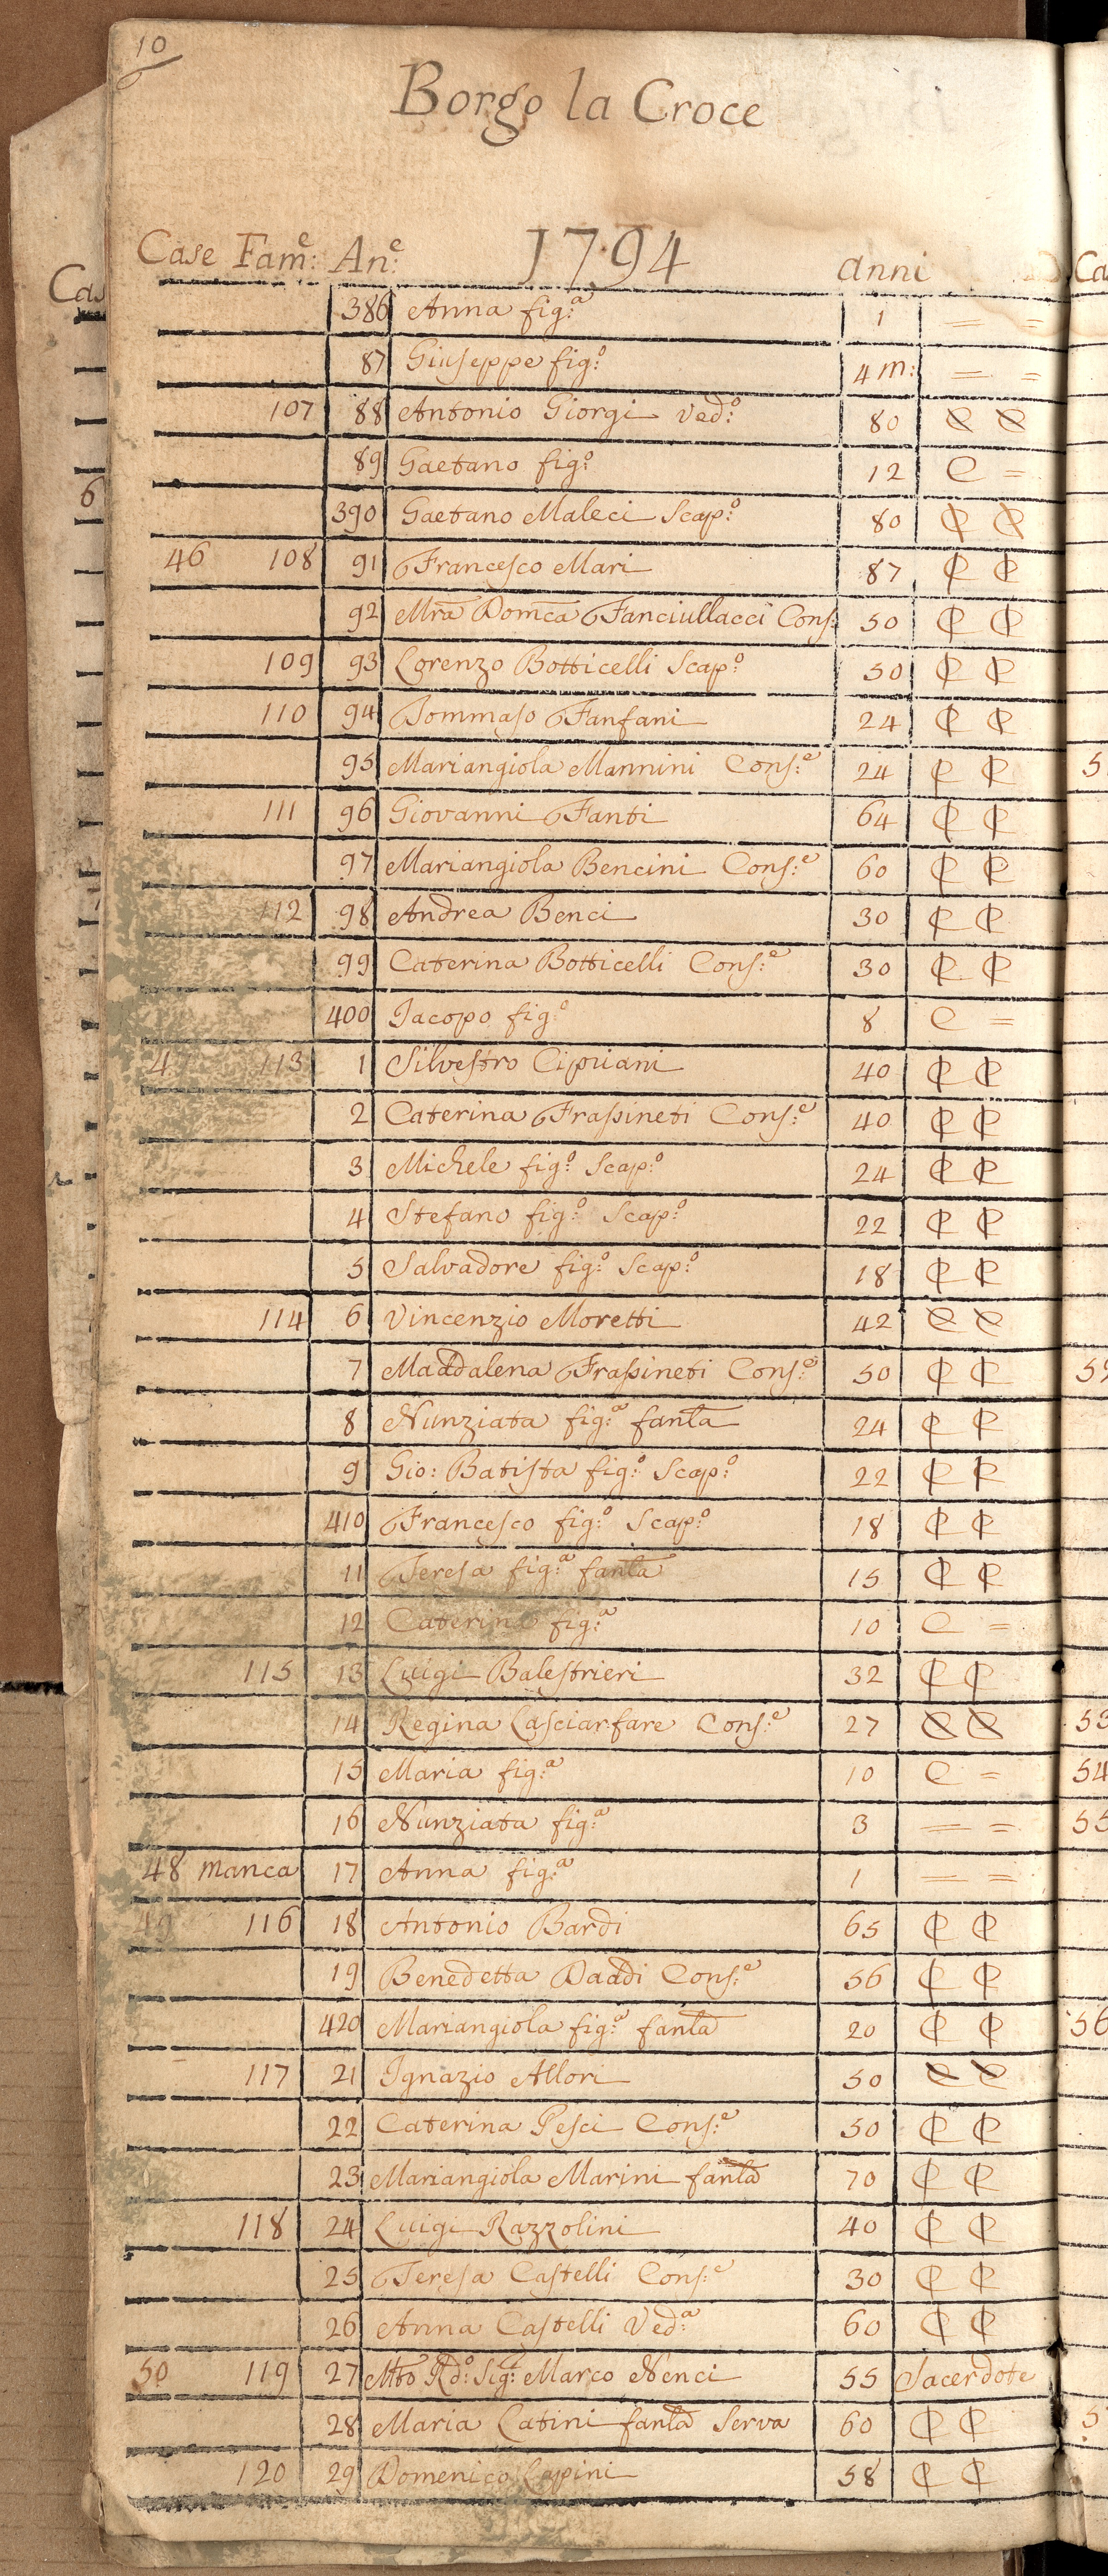 10
Borgo la Croce
1794
Case Fam:e An:e anni
386 Anna fig:a 1 = =
87 Giuseppe fig:o 4 m: = =
107 88 Antonio Giorgi Ved:o 80 C C
89 Gaetano fig:o 12 C =
390 Gaetano Maleci Scap:o 80 C C
46 108 91 Francesco Mari 87 C C
92 Mra Domca Fanciullacci Cons: 50 C C
109 93 Lorenzo Botticelli Scap:o 50 C C
110 94 Tommaso Fanfani 24 C C
95 Mariangiola Mannini Cons:e 24 C C
111 96 Giovanni Fanti 64 C C
97 Mariangiola Bencini Cons:e 60 C C
112 98 Andrea Benci 30 C C
99 Caterina Botticelli Cons:e 30 C C
400 Jacopo fig:o 8 C =
4 113 1 Silvestro Cipriani 40 C C
2 Caterina Frassineti Cons:e 40 C C
3 Michele fig:o Scap:o 24 C C
4 Stefano fig:o Scap:o 22 C C
5 Salvadore fig:o Scap:o 18 C C
114 6 Vincenzio Moretti 42 C C
7 Maddalena Frassineti Cons:e 50 C C
8 Nunziata fig:a fanla 24 C C
9 Gio: Batista fig:o Scap:o 22 C C
410 Francesco fig:o Scap:o 18 C C
11 Teresa fig:a fanla 15 C C
12 Caterina fig:a 10 C =
115 13 Luigi Balestrieri 32 C C
14 Regina Lasciarfare Cons:e 27 C C
15 Maria fig:a 10 C =
16 Nunziata fig:a 3 = =
48 manca 17 Anna fig:a 1 = =
49 116 18 Antonio Bardi 65 C C
19 Benedetta Daddi Cons:e 56 C C
420 Mariangiola fig:a fanla 20 C C
117 21 Ignazio Allori 50 C C
22 Caterina Pesci Cons:e 50 C C
23 Mariangiola Marini fanla 70 C C
118 24 Luigi Razzolini 40 C C
25 Teresa Castelli Cons:e 30 C C
26 Anna Castelli Ved:a 60 C C
50 119 27 Mto Rd:o Sig:e Marco Nenci 55 Sacerdote
28 Maria Latini fanla Serva 60 C C
120 29 Domenico Lapini 58 C C